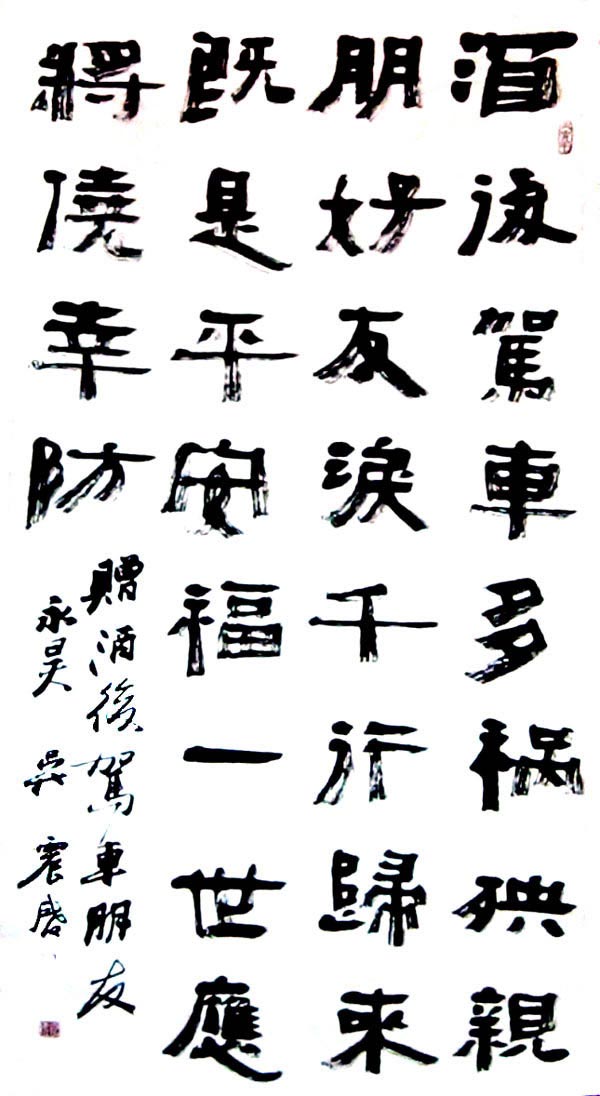 酒後駕車多禍殃親
朋好友淚千行歸來
既是平安福一世應
將僥幸防
贈酒後駕車朋友
永昊 吳震啓